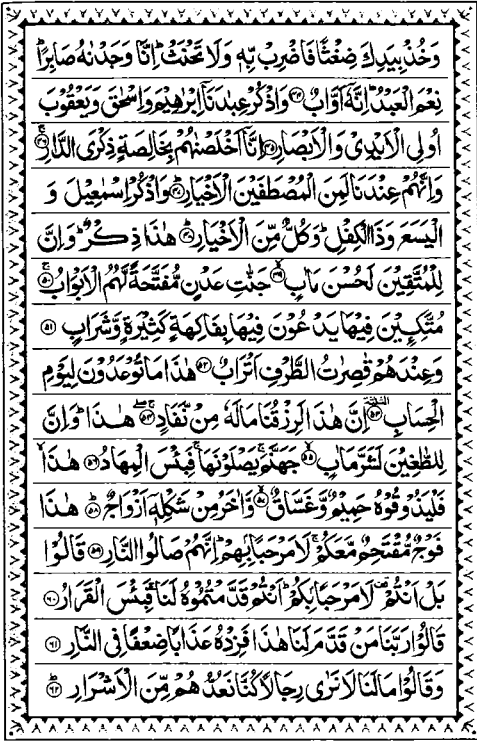 وَخُذْ بِيَدِكَ ضِغْثًا فَاضْرِبْ بِّهٖ وَلَا تَحْنَثْ ؕ اِنَّا وَجَدْنٰهُ صَابِرًا ؕ
نِعْمَ الْعَبْدُ ؕ اِنَّهٗۤ اَوَّابٌ ﴿۴۴﴾ وَاذْكُرْ عِبٰدَنَاۤ اِبْرٰهِيْمَ وَاِسْحٰقَ وَيَعْقُوْبَ
اُولِى الْاَيْدِىْ وَالْاَبْصَارِ ﴿۴۵﴾ اِنَّاۤ اَخْلَصْنٰهُمْ بِخَالِصَةٍ ذِكْرَى الدَّارِ ۚ ﴿۴۶﴾
وَاِنَّهُمْ عِنْدَنَا لَمِنَ الْمُصْطَفَيْنَ الْاَخْيَارِ ؕ ﴿۴۷﴾ وَاذْكُرْ اِسْمٰعِيْلَ وَ
الْيَسَعَ وَذَا الْكِفْلِ ؕ وَكُلٌّ مِّنَ الْاَخْيَارِ ؕ ﴿۴۸﴾ هٰذَا ذِكْرٌ ؕ وَاِنَّ
لِلْمُتَّقِيْنَ لَحُسْنَ مَاٰبٍ ۙ ﴿۴۹﴾ جَنّٰتِ عَدْنٍ مُّفَتَّحَةً لَّهُمُ الْاَبْوَابُ ۚ ﴿۵۰﴾
مُتَّكِـِٕيْنَ فِيْهَا يَدْعُوْنَ فِيْهَا بِفَاكِهَةٍ كَثِيْرَةٍ وَّشَرَابٍ ﴿۵۱﴾
وَعِنْدَهُمْ قٰصِرٰتُ الطَّرْفِ اَتْرَابٌ ﴿۵۲﴾ هٰذَا مَا تُوْعَدُوْنَ لِيَوْمِ
الْحِسَابِ ﴿۵۳﴾ اِنَّ هٰذَا لَرِزْقُنَا مَا لَهٗ مِنْ نَّفَادٍ ۚۖ ﴿۵۴﴾ هٰذَا ؕ وَاِنَّ
لِلطّٰغِيْنَ لَشَرَّ مَاٰبٍ ۙ ﴿۵۵﴾ جَهَنَّمَ ۚ يَصْلَوْنَهَا ۚ فَبِئْسَ الْمِهَادُ ﴿۵۶﴾ هٰذَا ۙ
فَلْيَذُوْقُوْهُ حَمِيْمٌ وَّغَسَّاقٌ ۙ ﴿۵۷﴾ وَّاٰخَرُ مِنْ شَكْلِهٖۤ اَزْوَاجٌ ؕ ﴿۵۸﴾ هٰذَا
فَوْجٌ مُّقْتَحِمٌ مَّعَكُمْ ۚ لَا مَرْحَبًۢا بِهِمْ ؕ اِنَّهُمْ صَالُوا النَّارِ ﴿۵۹﴾ قَالُوْا
بَلْ اَنْتُمْ ۫ لَا مَرْحَبًۢا بِكُمْ ؕ اَنْتُمْ قَدَّمْتُمُوْهُ لَنَا ۚ فَبِئْسَ الْقَرَارُ ﴿۶۰﴾
قَالُوْا رَبَّنَا مَنْ قَدَّمَ لَنَا هٰذَا فَزِدْهُ عَذَابًا ضِعْفًا فِى النَّارِ ﴿۶۱﴾
وَقَالُوْا مَا لَنَا لَا نَرٰى رِجَالًا كُنَّا نَعُدُّهُمْ مِّنَ الْاَشْرَارِ ؕ ﴿۶۲﴾